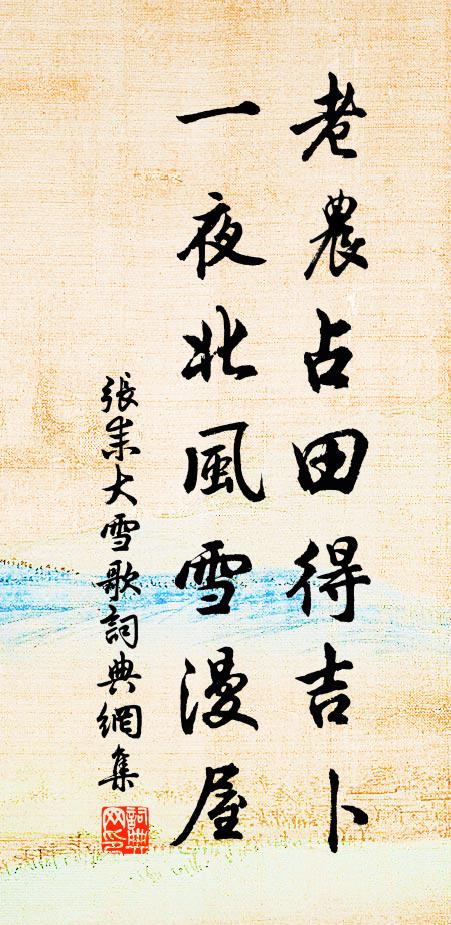 老農占田得吉卜
一夜北風雪漫屋
張耒大雪歌詞典網集
詞典網印